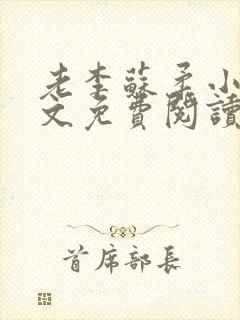 老李蘇柔小
文免費閱讀
首席部長